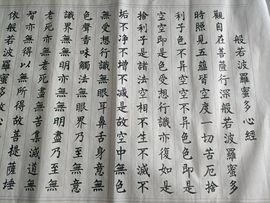 般若波羅蜜多心經
觀自在菩薩行深般若波羅蜜多
時照見五蘊皆空度一切苦厄捨
利子色不異空空不異色色即是
空空即是色受想行識亦復如是
捨利子是諸法空相不生不滅不
垢不淨不增不減是故空中無色
無受想行識無眼耳鼻舌身意無
色聲香味觸法無眼界乃至無意
識界無無明亦無無明盡乃至無
老死亦無老死盡無苦集滅道無
智亦無得以無所得故菩提薩埵
依般若波羅蜜多故心